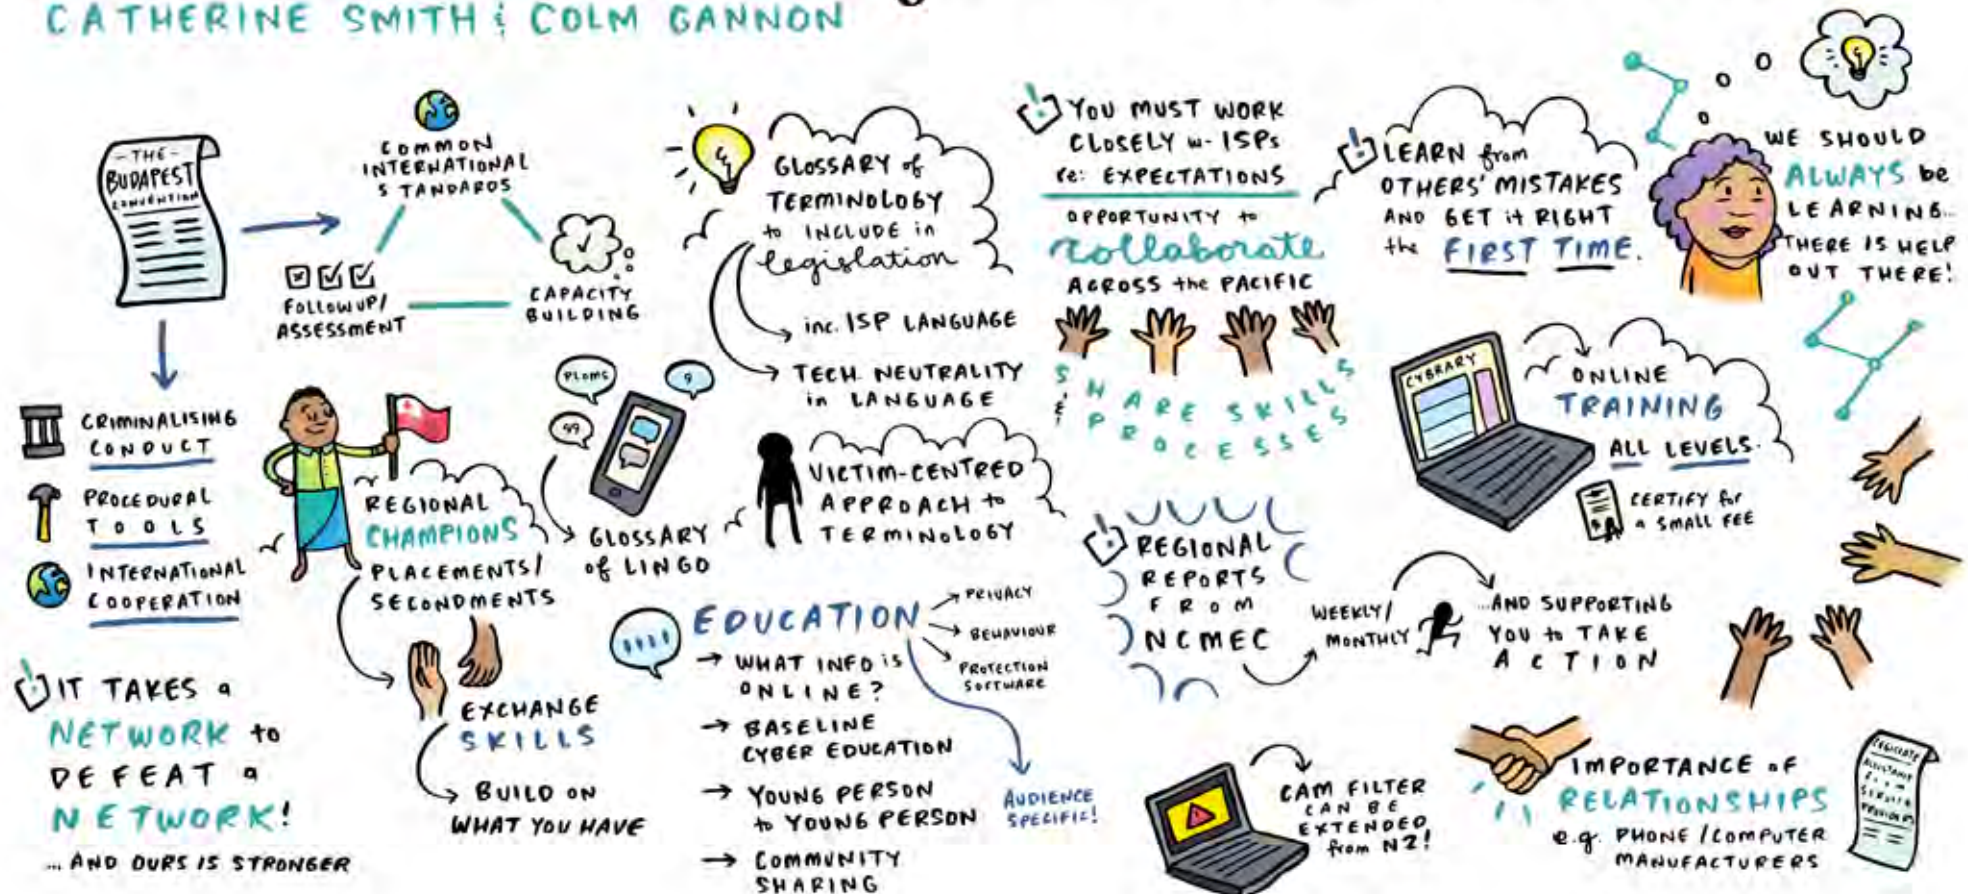 CATHERINE SMITH & COLM GANNON
-THE-
BUDAPEST
CONVENTION
COMMON
INTERNATIONAL
STANDARDS
FOLLOW UP/
ASSESSMENT
CAPACITY
BUILDING
CRIMINALISING
CONDUCT
PROCEDURAL
TOOLS
INTERNATIONAL
COOPERATION
IT TAKES a
NETWORK to
DEFEAT a
NETWORK!
... AND OURS IS STRONGER
REGIONAL
CHAMPIONS
PLACEMENTS/
SECONDMENTS
EXCHANGE
SKILLS
BUILD ON
WHAT YOU HAVE
PLOMS
9
99
GLOSSARY
of LINGO
GLOSSARY of
TERMINOLOGY
to INCLUDE in
legislation
inc. ISP LANGUAGE
TECH. NEUTRALITY
in LANGUAGE
VICTIM-CENTRED
APPROACH to
TERMINOLOGY
EDUCATION
PRIVACY
BEHAVIOUR
PROTECTION
SOFTWARE
WHAT INFO is
ONLINE?
BASELINE
CYBER EDUCATION
YOUNG PERSON
to YOUNG PERSON
COMMUNITY
SHARING
AUDIENCE
SPECIFIC!
YOU MUST WORK
CLOSELY w- ISPs
re: EXPECTATIONS
OPPORTUNITY to
collaborate
ACROSS the PACIFIC
SHARE SKILLS
& PROCESSES
REGIONAL
REPORTS
FROM
NCMEC
WEEKLY/
MONTHLY
...AND SUPPORTING
YOU to TAKE
ACTION
CAM FILTER
CAN BE
EXTENDED
from NZ!
LEARN from
OTHERS' MISTAKES
AND GET it RIGHT
the FIRST TIME.
WE SHOULD
ALWAYS be
LEARNING...
THERE IS HELP
OUT THERE!
CYBRARY
ONLINE
TRAINING
ALL LEVELS.
CERTIFY for
a SMALL FEE
IMPORTANCE of
RELATIONSHIPS
e.g. PHONE/COMPUTER
MANUFACTURERS
ASSISTANCE
FROM
SERVICE
PROVIDERS